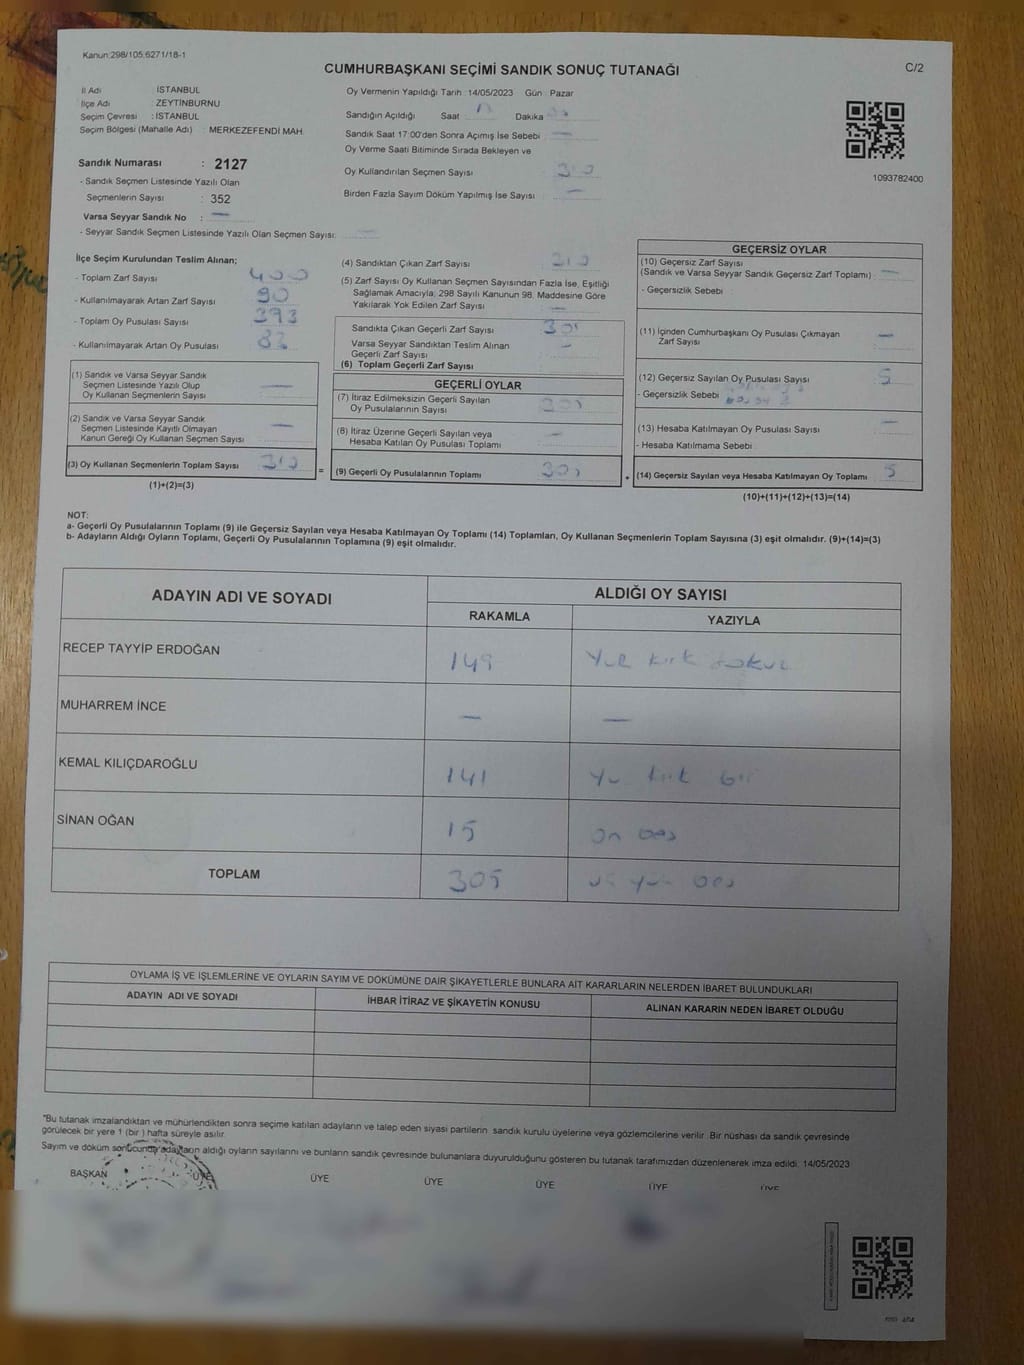 Kanun:298/105;6271/18-1
CUMHURBAŞKANI SEÇİMİ SANDIK SONUÇ TUTANAĞI
C/2
İl Adı İSTANBUL
İlçe Adı : ZEYTİNBURNU
Seçim Çevresi : İSTANBUL
Seçim Bölgesi (Mahalle Adı) : MERKEZEFENDİ MAH.
Sandık Numarası : 2127
- Sandık Seçmen Listesinde Yazılı Olan
Seçmenlerin Sayısı : 352
Varsa Seyyar Sandık No : —
- Seyyar Sandık Seçmen Listesinde Yazılı Olan Seçmen Sayısı:
Oy Vermenin Yapıldığı Tarih : 14/05/2023 Gün : Pazar
Sandığın Açıldığı Saat Dakika
Sandık Saat 17:00'den Sonra Açımış İse Sebebi : —
Oy Verme Saati Bitiminde Sırada Bekleyen ve
Oy Kullandırılan Seçmen Sayısı : 310
Birden Fazla Sayım Döküm Yapılmış İse Sayısı : —
1093782400
İlçe Seçim Kurulundan Teslim Alınan;
- Toplam Zarf Sayısı 400
- Kullanılmayarak Artan Zarf Sayısı 90
- Toplam Oy Pusulası Sayısı 393
- Kullanılmayarak Artan Oy Pusulası 83
(1) Sandık ve Varsa Seyyar Sandık
Seçmen Listesinde Yazılı Olup
Oy Kullanan Seçmenlerin Sayısı : —
(2) Sandık ve Varsa Seyyar Sandık
Seçmen Listesinde Kayıtlı Olmayan
Kanun Gereği Oy Kullanan Seçmen Sayısı : —
(3) Oy Kullanan Seçmenlerin Toplam Sayısı : 310
(1)+(2)=(3)
=
(4) Sandıktan Çıkan Zarf Sayısı : 310
(5) Zarf Sayısı Oy Kullanan Seçmen Sayısından Fazla İse, Eşitliği
Sağlamak Amacıyla; 298 Sayılı Kanunun 98. Maddesine Göre
Yakılarak Yok Edilen Zarf Sayısı : —
Sandıkta Çıkan Geçerli Zarf Sayısı : 305
Varsa Seyyar Sandıktan Teslim Alınan
Geçerli Zarf Sayısı : —
(6) Toplam Geçerli Zarf Sayısı
GEÇERLİ OYLAR
(7) İtiraz Edilmeksizin Geçerli Sayılan
Oy Pusulalarının Sayısı : 305
(8) İtiraz Üzerine Geçerli Sayılan veya
Hesaba Katılan Oy Pusulası Toplamı : —
(9) Geçerli Oy Pusulalarının Toplamı : 305
GEÇERSİZ OYLAR
(10) Geçersiz Zarf Sayısı
(Sandık ve Varsa Seyyar Sandık Geçersiz Zarf Toplamı) : —
- Geçersizlik Sebebi :
(11) İçinden Cumhurbaşkanı Oy Pusulası Çıkmayan
Zarf Sayısı : —
(12) Geçersiz Sayılan Oy Pusulası Sayısı : 5
- Geçersizlik Sebebi
(13) Hesaba Katılmayan Oy Pusulası Sayısı : —
- Hesaba Katılmama Sebebi :
(14) Geçersiz Sayılan veya Hesaba Katılmayan Oy Toplamı : 5
(10)+(11)+(12)+(13)=(14)
NOT:
a- Geçerli Oy Pusulalarının Toplamı (9) ile Geçersiz Sayılan veya Hesaba Katılmayan Oy Toplamı (14) Toplamları, Oy Kullanan Seçmenlerin Toplam Sayısına (3) eşit olmalıdır. (9)+(14)=(3)
b- Adayların Aldığı Oyların Toplamı, Geçerli Oy Pusulalarının Toplamına (9) eşit olmalıdır.
ADAYIN ADI VE SOYADI ALDIĞI OY SAYISI
RAKAMLA YAZIYLA
RECEP TAYYİP ERDOĞAN 149 Yüz kırk dokuz
MUHARREM İNCE — —
KEMAL KILIÇDAROĞLU 141 Yüz kırk bir
SİNAN OĞAN 15 on beş
TOPLAM 305 üç yüz beş
OYLAMA İŞ VE İŞLEMLERİNE VE OYLARIN SAYIM VE DÖKÜMÜNE DAİR ŞİKAYETLERLE BUNLARA AİT KARARLARIN NELERDEN İBARET BULUNDUKLARI
ADAYIN ADI VE SOYADI İHBAR İTİRAZ VE ŞİKAYETİN KONUSU ALINAN KARARIN NEDEN İBARET OLDUĞU
"Bu tutanak imzalandıktan ve mühürlendikten sonra seçime katılan adayların ve talep eden siyasi partilerin sandık kurulu üyelerine veya gözlemcilerine verilir. Bir nüshası da sandık çevresinde
görülecek bir yere 1 (bir ) hafta süreyle asılır.
Sayım ve döküm sonucunda adayların aldığı oyların sayılarını ve bunların sandık çevresinde bulunanlara duyurulduğunu gösteren bu tutanak tarafımızdan düzenlenerek imza edildi. 14/05/2023
BAŞKAN ÜYE ÜYE ÜYE ÜYE ÜYE ÜYE